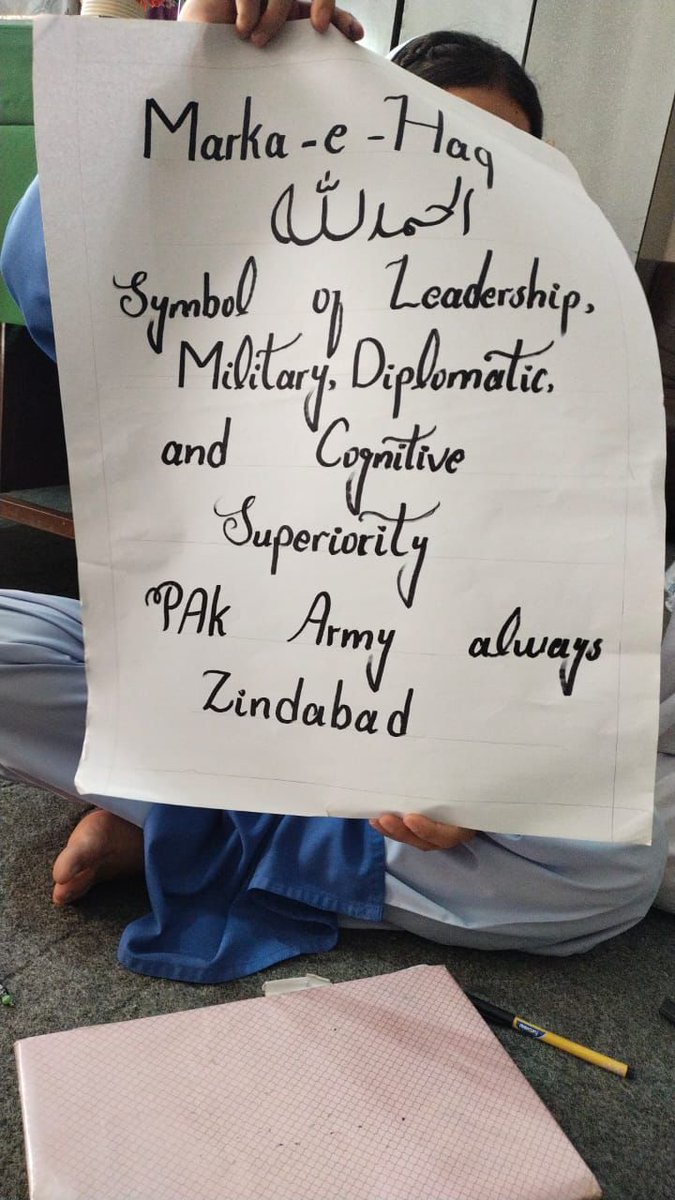 Marka-e-Haq
الحمدللّٰه
Symbol of Leadership,
Military, Diplomatic,
and Cognitive
Superiority
PAk Army always
Zindabad